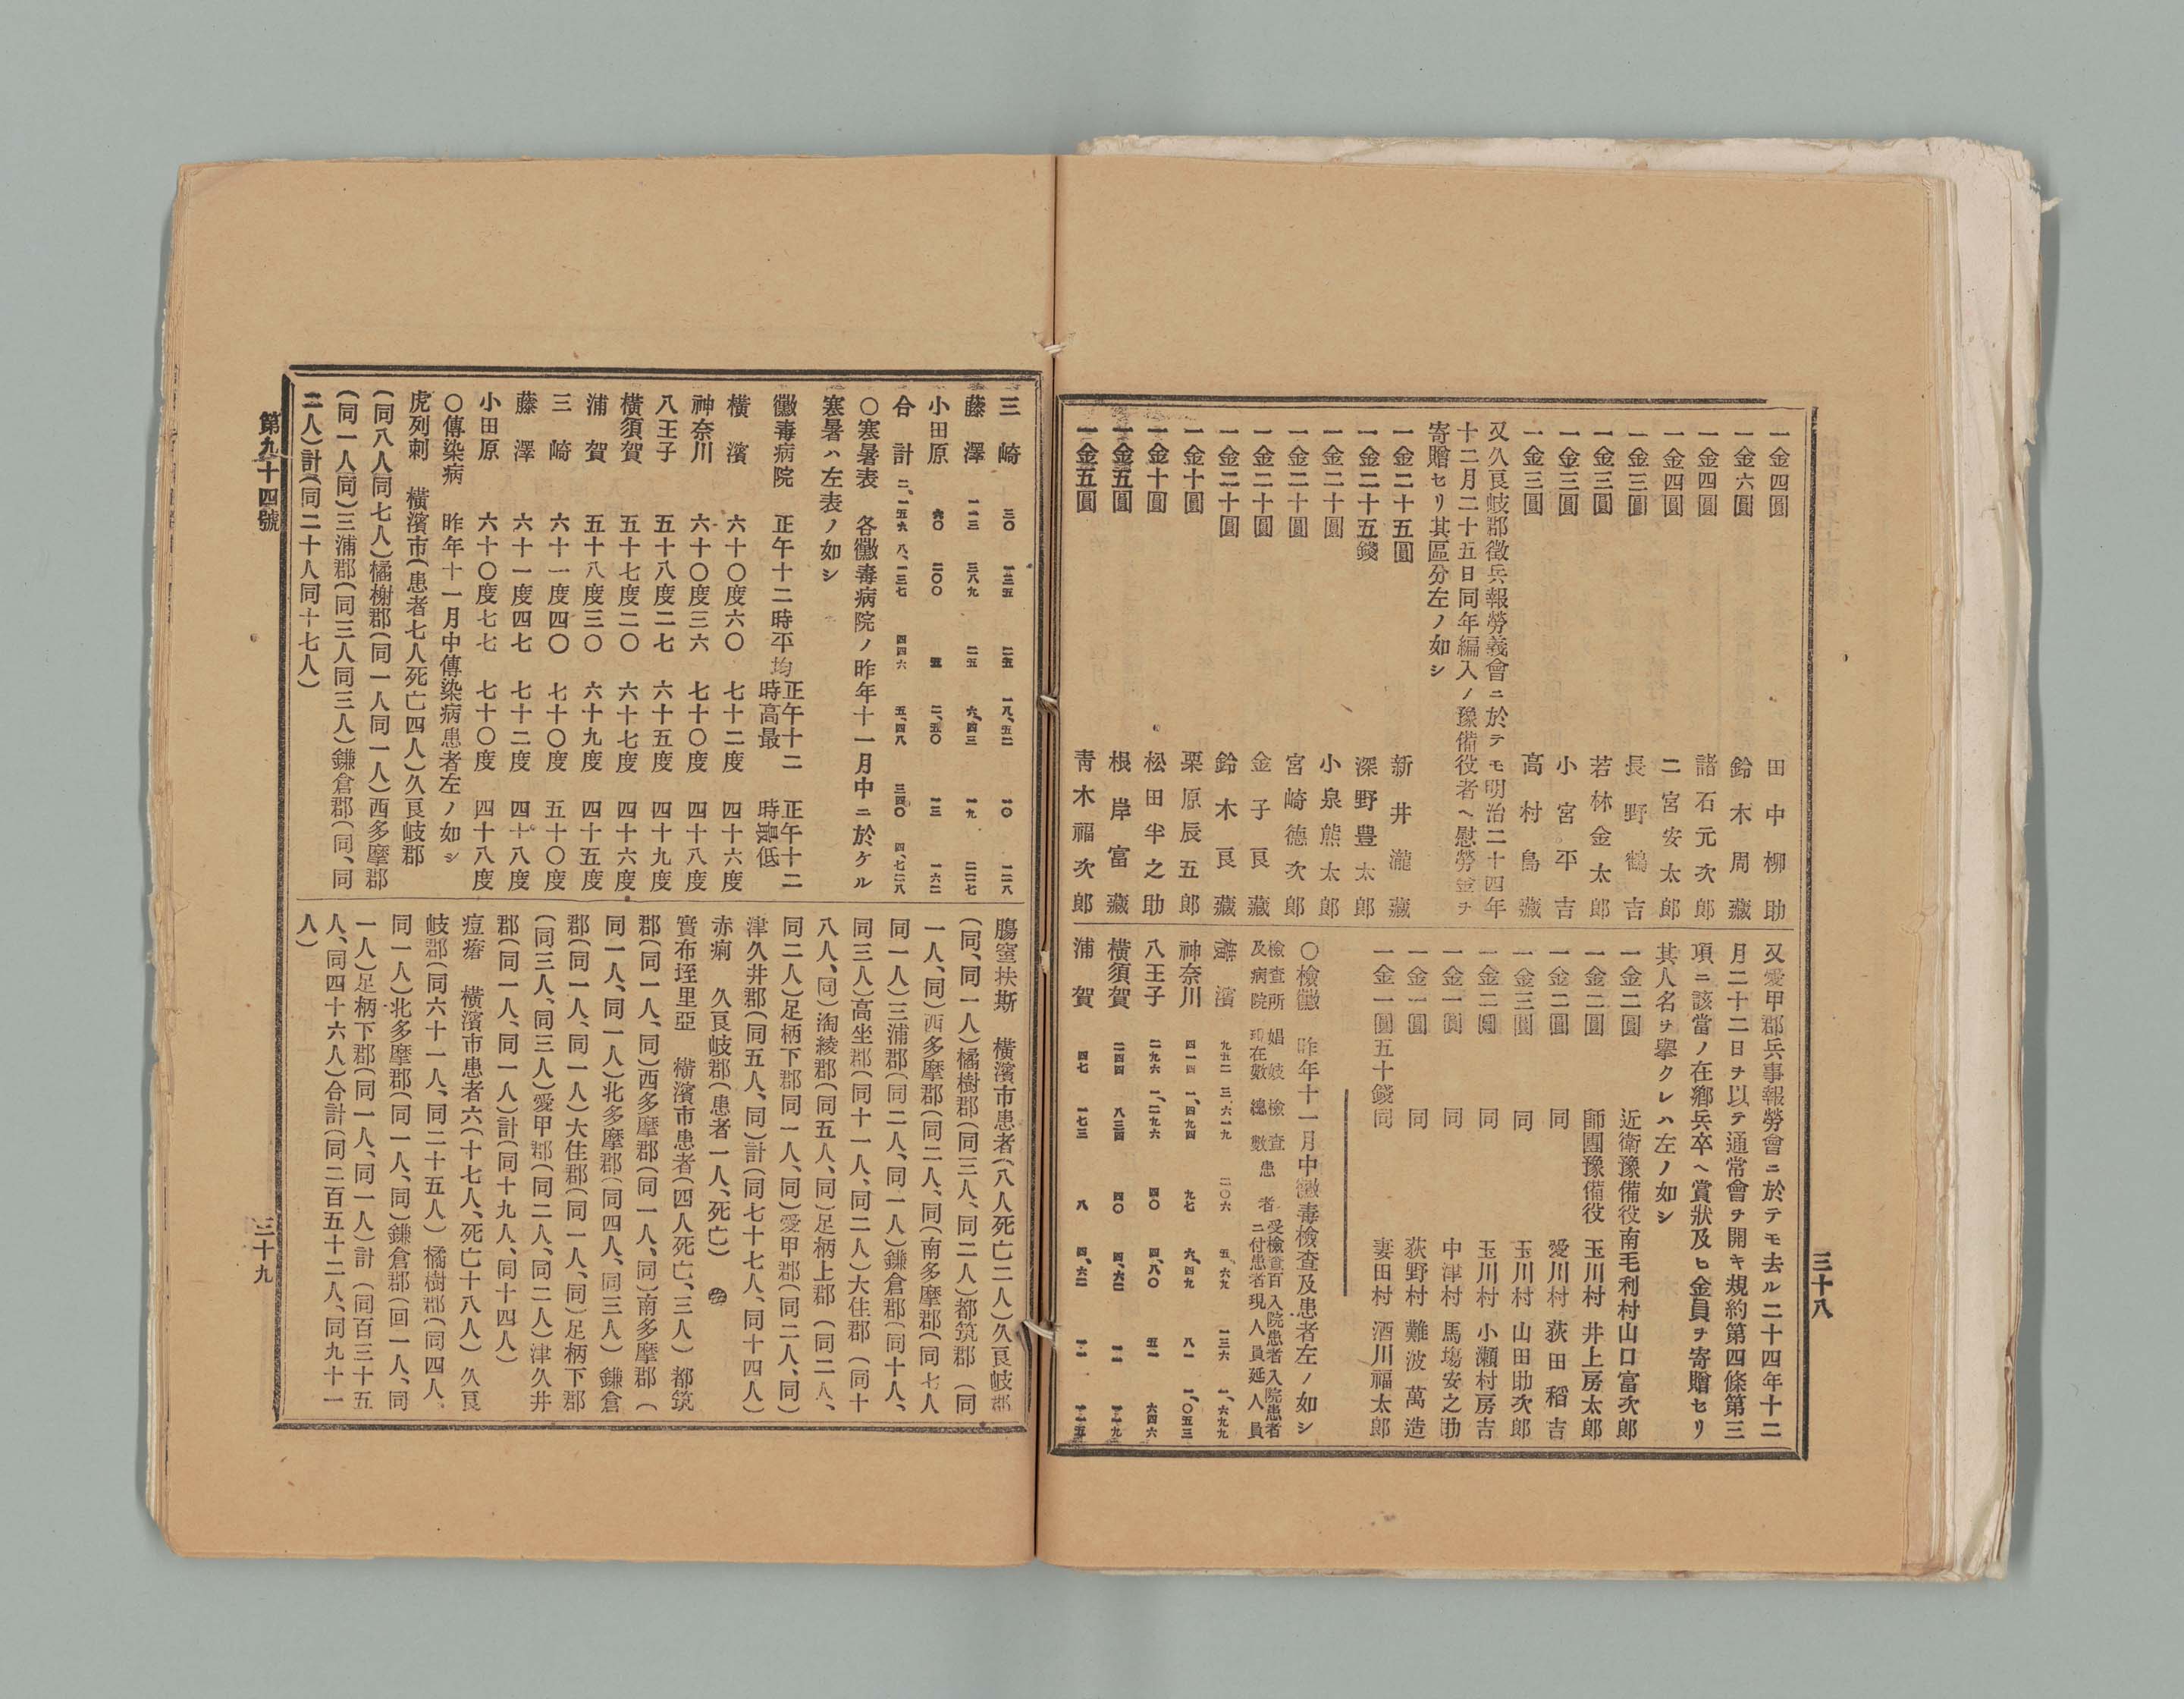 三十八
一金四圓 田中柳助
一金六圓 鈴木周藏
一金四圓 諸石元次郎
一金四圓 二宮安太郎
一金三圓 長野鶴吉
一金三圓 若林金太郎
一金三圓 小宮平吉
一金三圓 高村島藏
又久良岐郡徵兵報勞義會ニ於テモ明治二十四年
十二月二十五日同年編入ノ豫備役者ヘ慰勞金ヲ
寄贈セリ其區分左ノ如シ
一金二十五圓 新井瀧藏
一金二十五錢 深野豊太郎
一金二十圓 小泉熊太郎
一金二十圓 宮崎德次郎
一金二十圓 金子良藏
一金二十圓 鈴木良藏
一金十圓 栗原辰五郎
一金十圓 松田半之助
一金五圓 根岸富藏
一金五圓 青木福次郎
又愛甲郡兵事報勞會ニ於テモ去ル二十四年十二
月二十二日ヲ以テ通常會ヲ開キ規約第四條第三
項ニ該當ノ在鄉兵卒ヘ賞狀及ヒ金員ヲ寄贈セリ
其人名ヲ擧クレハ左ノ如シ
一金二圓 近衛豫備役南毛利村山口富次郎
一金二圓 師團豫備役 玉川村 井上房太郎
一金二圓 同 愛川村 荻田稻吉
一金三圓 同 玉川村 山田助次郎
一金二圓 同 玉川村 小瀬村房吉
一金一圓 同 中津村 馬塲安之助
一金一圓 同 荻野村 難波萬造
一金一圓五十錢 同 妻田村 酒川福太郎
〇檢黴 昨年十一月中黴毒檢查及患者左ノ如シ
檢查所及病院 娼妓現在數 檢查總數 患者 受檢查百ニ付患者 入院患者現人員 入院患者延人員
橫濱 九五二 三、六一九 二〇六 五、六九 一三六 一、六九九
神奈川 四一四 一、四九四 九七 六、四九 八一 一、〇五三
八王子 二九六 一、二九六 四〇 四、八〇 五一 六四六
橫須賀 二四四 八三四 四〇
浦賀 四七 一七三 八 四、六二
三崎 三〇 一三五 二五 一八、五二 一〇 一二八
藤澤 一一三 三八九 二五 六、四三 一九 二二七
小田原 六〇 二〇〇 五 二、五〇 一三 一六二
合計 二、一五六 八、一三七 四四六 五、四八 三四〇 四、七二八
〇寒暑表 各黴毒病院ノ昨年十一月中ニ於ケル
寒暑ハ左表ノ如シ
黴毒病院 正午十二時平均 正午十二時高最 正午十二時最低
橫濱 六十〇度六〇 七十二度 四十六度
神奈川 六十〇度三六 七十〇度 四十八度
八王子 五十八度二七 六十五度 四十九度
橫須賀 五十七度二〇 六十七度 四十六度
浦賀 五十八度三〇 六十九度 四十五度
三崎 六十一度四〇 七十〇度 五十〇度
藤澤 六十一度四七 七十二度 四十八度
小田原 六十〇度七七 七十〇度 四十八度
〇傳染病 昨年十一月中傳染病患者左ノ如シ
虎列剌 橫濱市(患者七人死亡四人)久良岐郡
(同八人同七人)橘榭郡(同一人同一人)西多摩郡
(同一人同)三浦郡(同三人同三人)鎌倉郡(同、同
二人)計(同二十人同十七人)
膓窒扶斯 橫濱市患者(八人死亡二人)久良岐郡
(同、同一人)橘樹郡(同三人、同二人)都筑郡(同
一人、同)西多摩郡(同二人、同(南多摩郡(同七人
同一人)三浦郡(同二人、同一人)鎌倉郡(同十人、
同三人)高坐郡(同十一人、同二人)大住郡(同十
八人、同)淘綾郡(同五人、同)足柄上郡(同二人、
同二人)足柄下郡同一人、同)愛甲郡(同二人、同)
津久井郡(同五人、同)計(同七十七人、同十四人)
赤痢 久良岐郡(患者一人、死亡)
實布垤里亞 橫濱市患者(四人死亡、三人)都筑
郡(同一人、同)西多摩郡(同一人、同)南多摩郡(
同一人、同一人)北多摩郡(同四人、同三人)鎌倉
郡(同一人、同一人)大住郡(同一人、同)足柄下郡
(同三人、同三人)愛甲郡(同二人、同二人)津久井
郡(同一人、同一人)計(同十九人、同十四人)
痘瘡 橫濱市患者六(十七人、死亡十八人)久良
岐郡(同六十一人、同二十五人)橘樹郡(同四人、
同一人)北多摩郡(同一人、同)鎌倉郡(回一人、同
一人)足柄下郡(同一人、同一人)計(同百三十五
人、同四十六人)合計(同二百五十二人、同九十一
人)
第九十四號
三十九